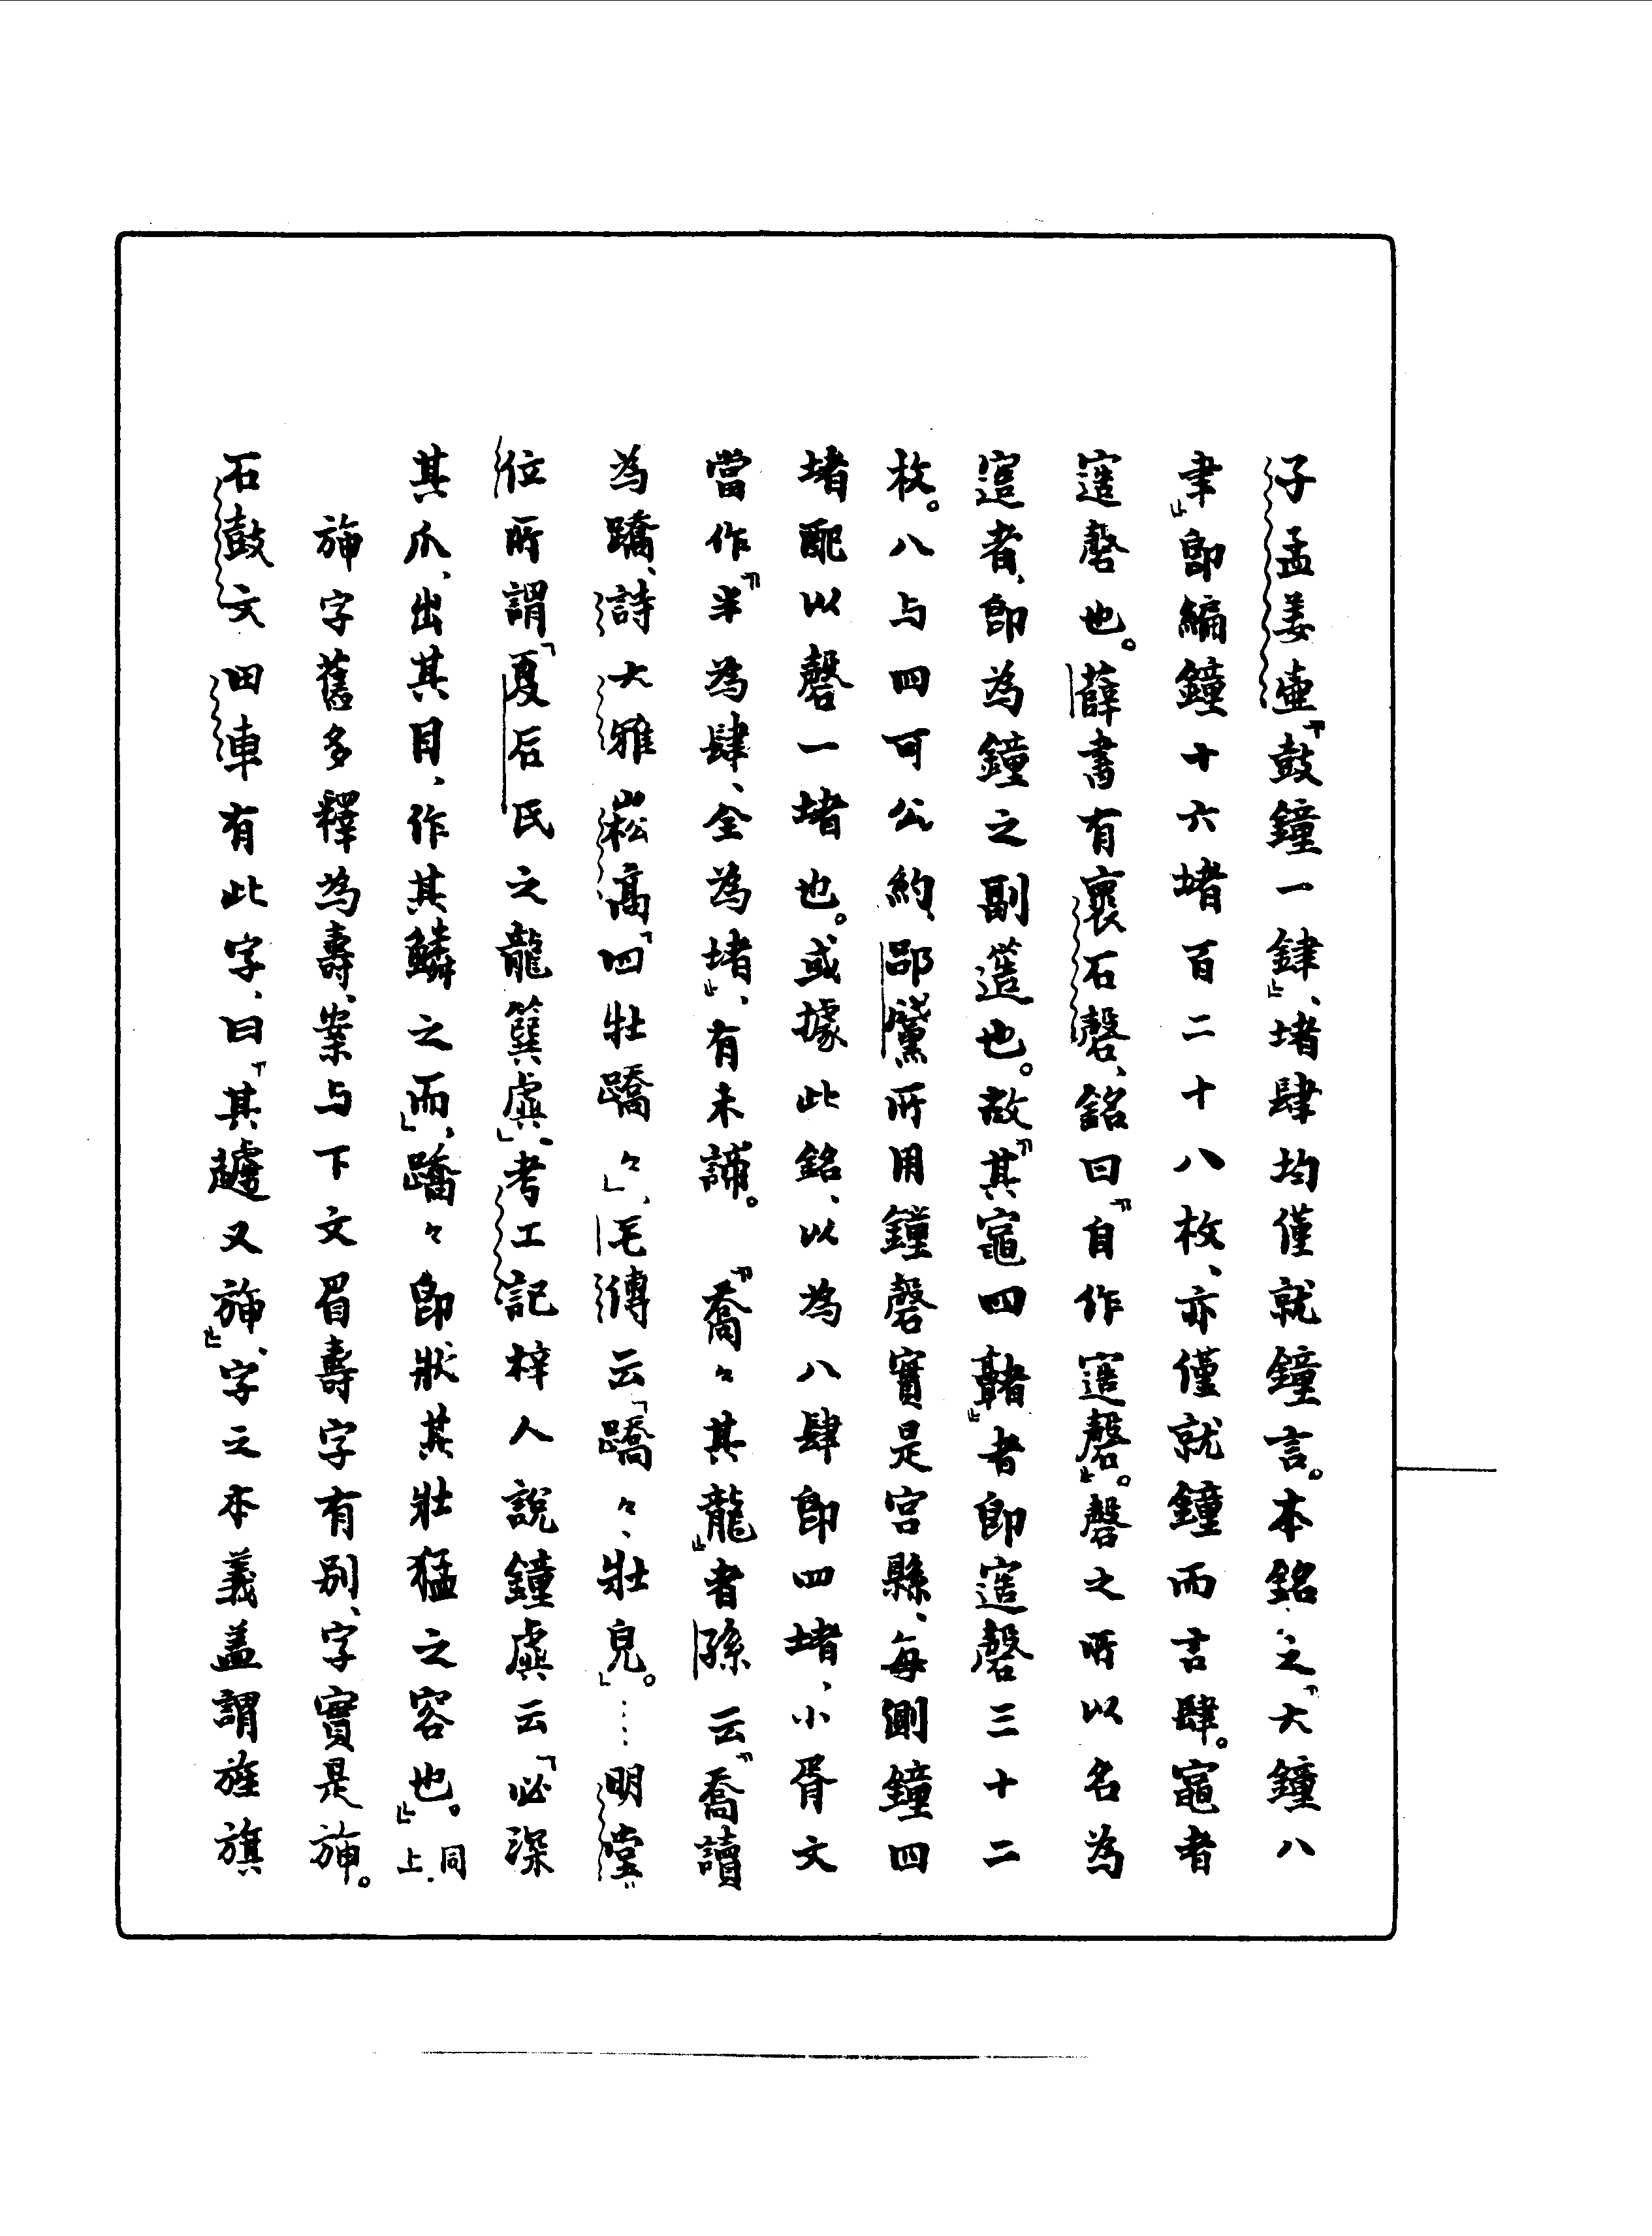 子孟姜壷『鼓鐘一銉』、堵肆均僅就鐘言。本銘之『大鐘八
聿』即編鐘十六堵百二十八枚、亦僅就鐘而言肆。竈者
寚磬也。薛書有褱石磬、銘曰『自作磬』。磬之所以名為
者、即為鐘之副簉也。故『其竈四堵』者即磬三十二
枚。八与四可公約、郘所用鐘磬實是宮縣、每測鐘四
堵配以磬一堵也。或據此銘、以為八肆即四堵、小胥文
當作『半為肆、全為堵』、有未諦。 『喬々其龍』者孫云『喬讀
為蹻、詩大雅崧高「四牡蹻々」、毛傳云「蹻々、壯皃」。……明堂
位所謂「夏后氏之龍簨虡」、考工記梓人說鐘虡云「必深
其爪、出其目、作其鱗之而」、蹻々即狀其壯猛之容也』。同上.
㫋字舊多釋為壽、案与下文眉壽字有別、字實是㫋。
石鼓文田車有此字、曰『其趩又㫋』、字之本義盖謂旌旗